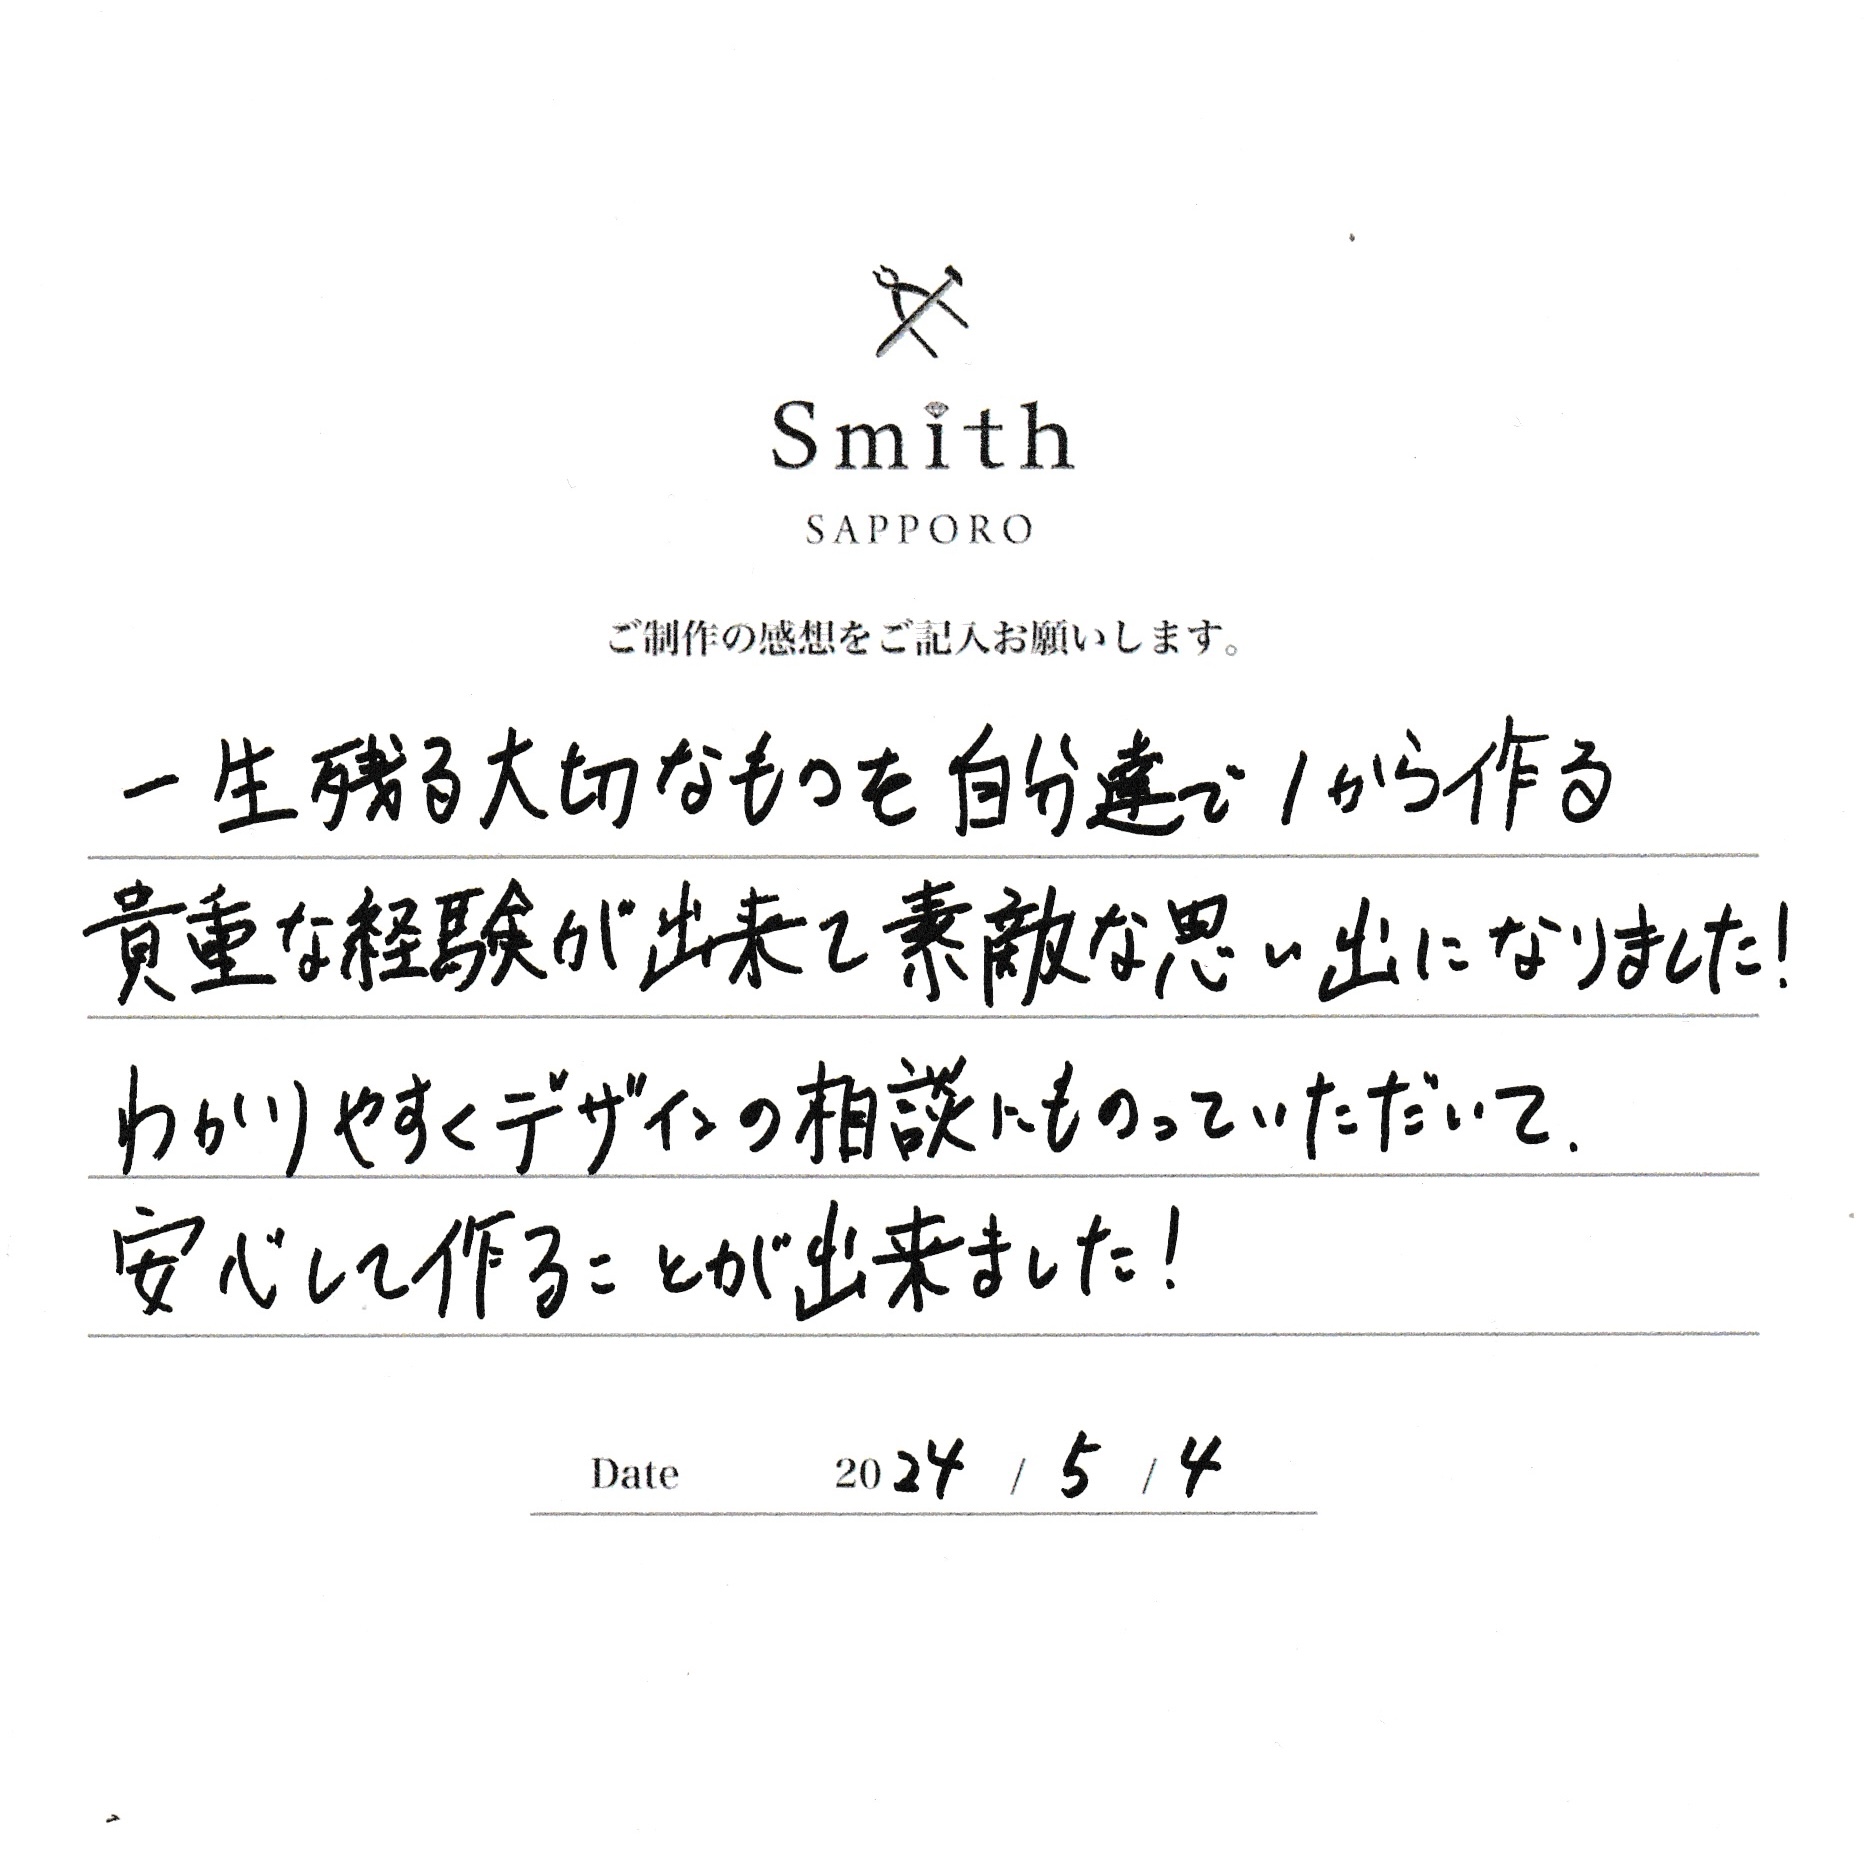 Smith
SAPPORO
ご制作の感想をご記入お願いします。
一生残る大切なものを自分達で1から作る
貴重な経験が出来て素敵な思い出になりました!
わかりやすくデザインの相談にものっていただいて、
安心して作ることが出来ました!
Date 2024 / 5 / 4